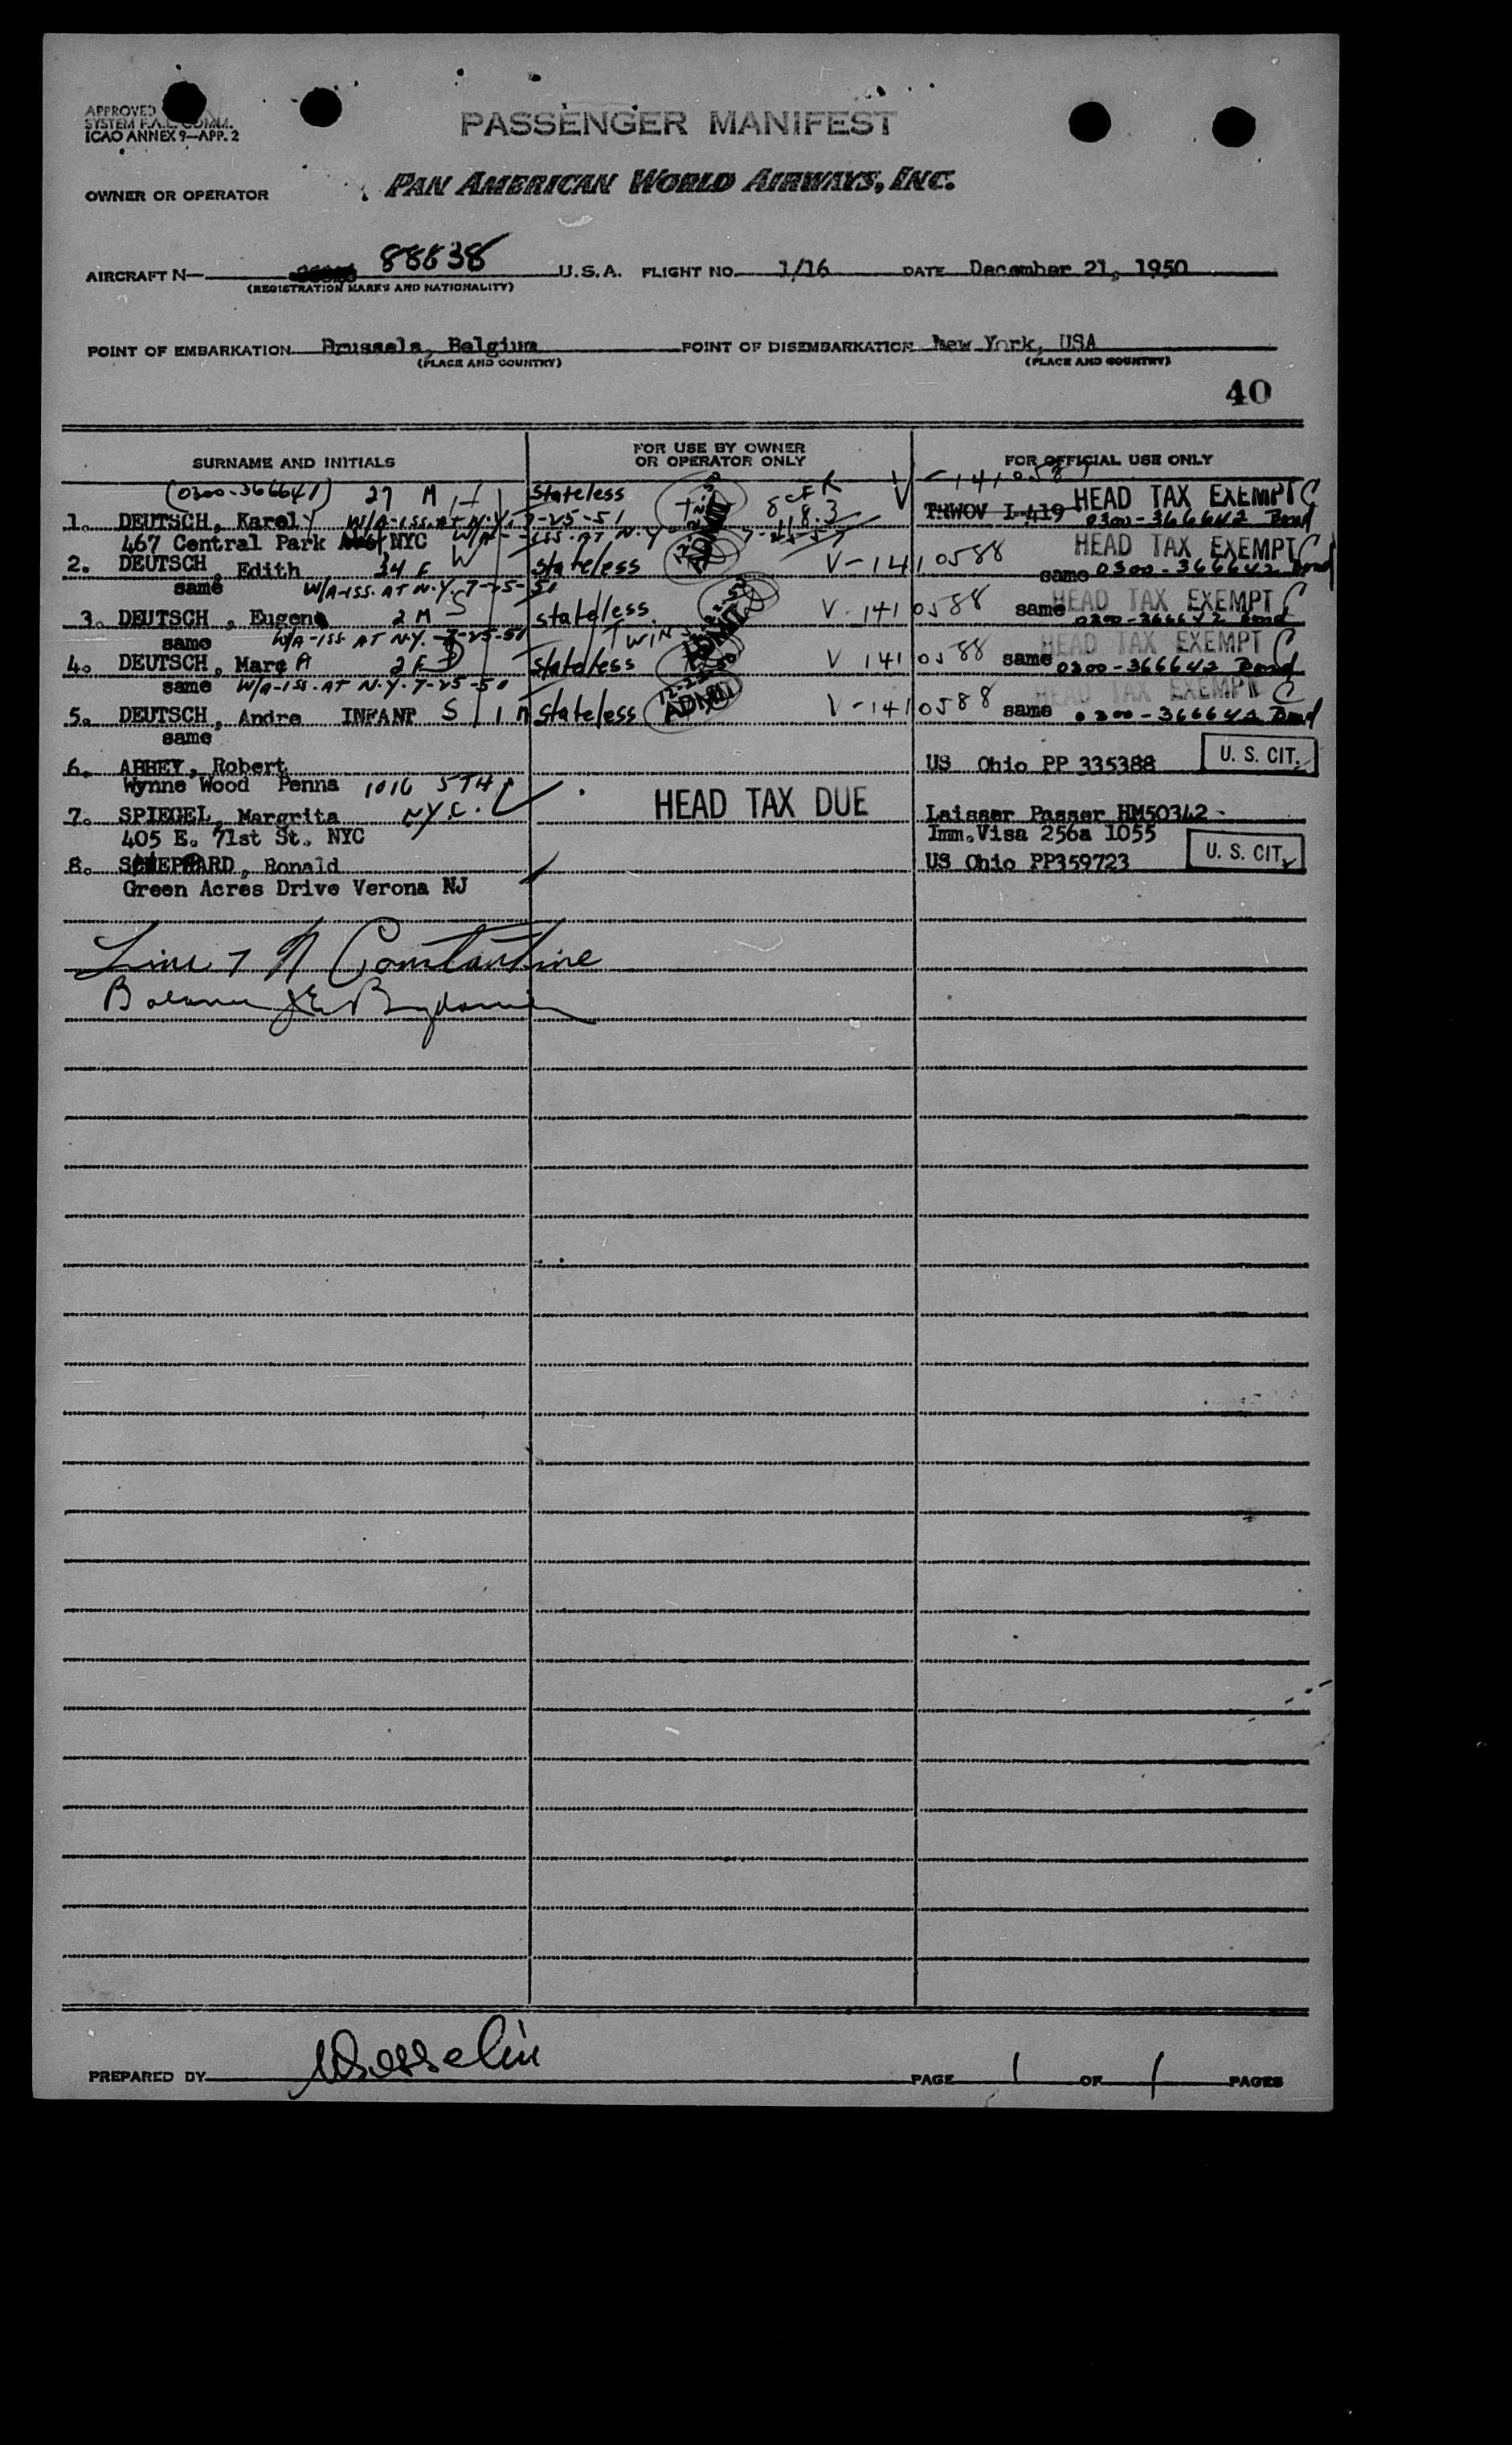 APPROVED
SYSTEM F.A.L. COMM.
ICAO ANNEX 9—APP. 2
PASSENGER MANIFEST
OWNER OR OPERATOR PAN AMERICAN WORLD AIRWAYS, INC.
AIRCRAFT N— 88838 U.S.A. FLIGHT NO. 1/16 DATE December 21, 1950
(REGISTRATION MARKS AND NATIONALITY)
POINT OF EMBARKATION Brussels, Belgium POINT OF DISEMBARKATION New York, USA
(PLACE AND COUNTRY) (PLACE AND COUNTRY)
40
SURNAME AND INITIALS FOR USE BY OWNER OR OPERATOR ONLY FOR OFFICIAL USE ONLY
(0300-366641) 27 M H Stateless 8 CFR V-1410587
1. DEUTSCH, Karoly W/A-ISS. AT N.Y. 7-25-51 118.3 TRWOV I-419 HEAD TAX EXEMPT C
0300-366642 Bond
467 Central Park West NYC W/A-ISS. AT N.Y. HEAD TAX EXEMPT C
2. DEUTSCH, Edith 24 F W Stateless ADMIT V-1410588 same 0300-366642 Bond
same W/A-ISS. AT N.Y. 7-25-50
3. DEUTSCH, Eugene 2 M S stateless V-1410588 same HEAD TAX EXEMPT C
0300-366642 Bond
same W/A-ISS. AT N.Y. 7-25-50 TWINS ADMIT
4. DEUTSCH, Marc A 2 F Stateless V 1410588 same HEAD TAX EXEMPT C
0300-366642 Bond
same W/A-ISS. AT N.Y. 7-25-50 12-22-50 ADMIT HEAD TAX EXEMPT C
5. DEUTSCH, Andre INFANT S 1 M Stateless V-1410588 same 0300-366642 Bond
same
6. ABBEY, Robert US Ohio PP 335388 U. S. CIT.
Wynne Wood Penna 1016 5TH
7. SPIEGEL, Margrita NYC. HEAD TAX DUE Laisser Passer HM50342
405 E. 71st St., NYC Imm.Visa 256a 1055
8. SHEPPARD, Ronald US Ohio PP359723 U. S. CIT.
Green Acres Drive Verona NJ
Line 7 N Constantine
Balance
PREPARED BY PAGE 1 OF 1 PAGES